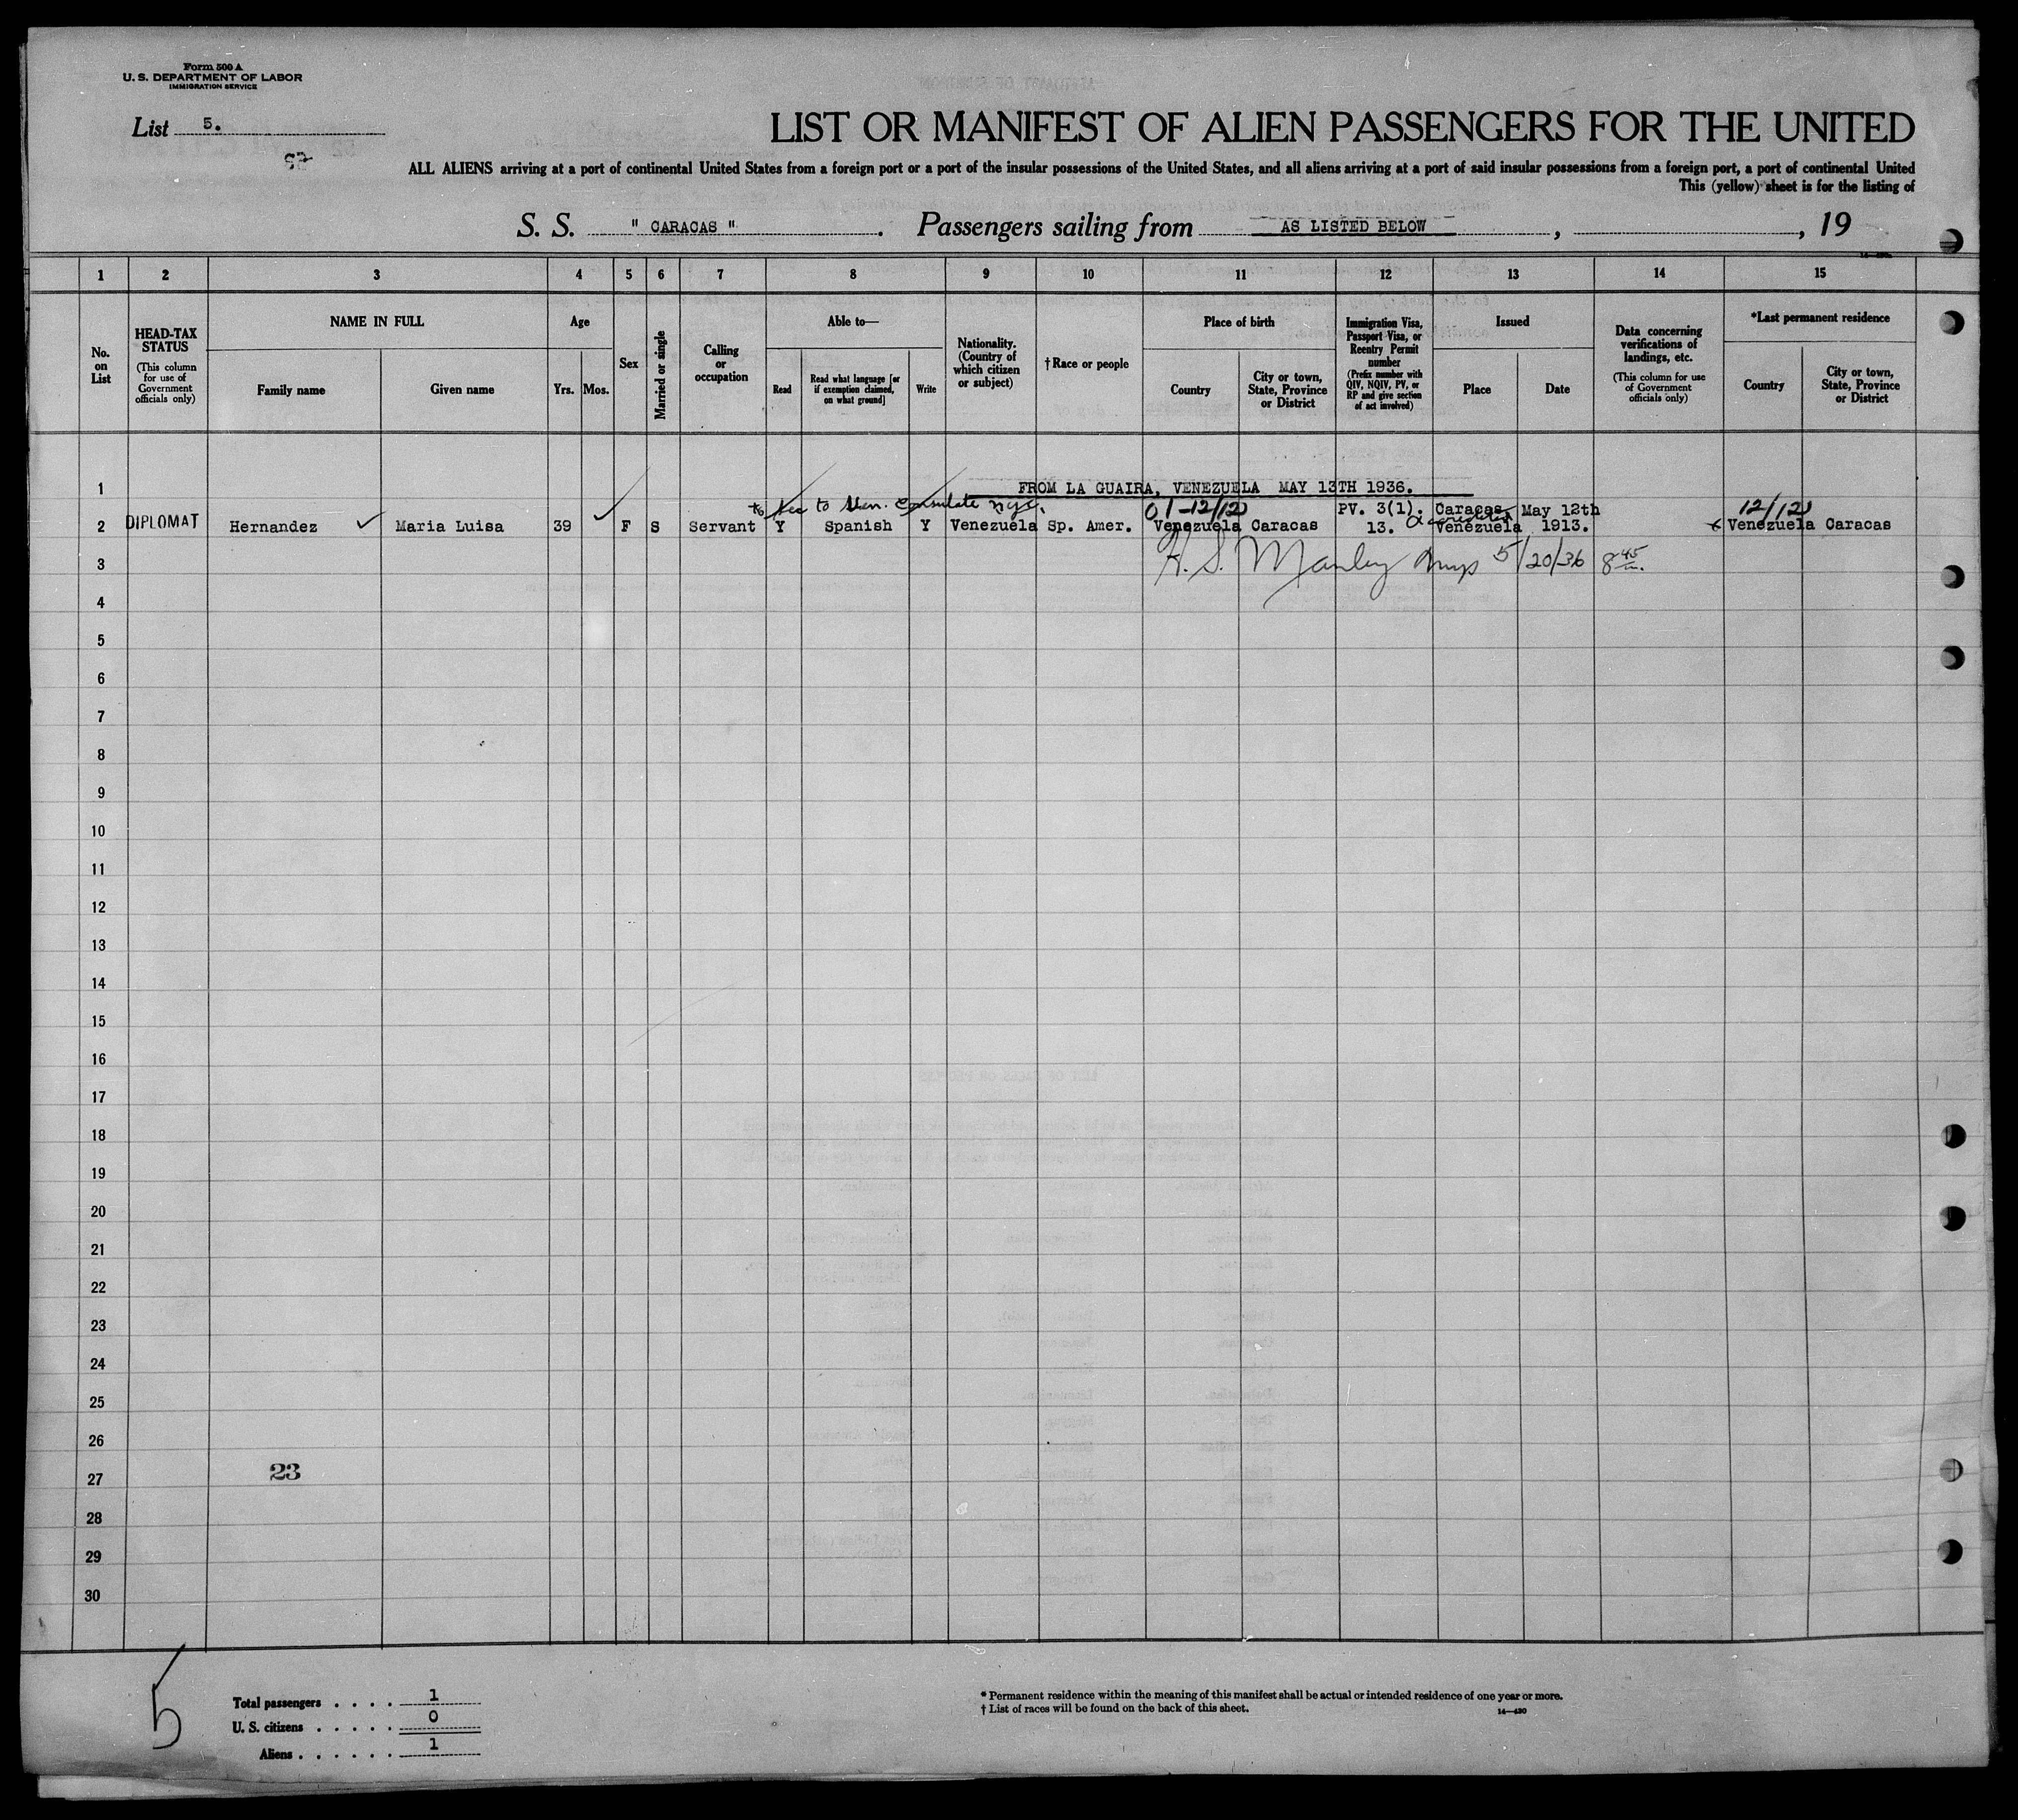 Form 500 A
U. S. DEPARTMENT OF LABOR
IMMIGRATION SERVICE
List 5.
LIST OR MANIFEST OF ALIEN PASSENGERS FOR THE UNITED
ALL ALIENS arriving at a port of continental United States from a foreign port or a port of the insular possessions of the United States, and all aliens arriving at a port of said insular possessions from a foreign port, a port of continental United
This (yellow) sheet is for the listing of
S. S. " CARACAS ". Passengers sailing from AS LISTED BELOW, , 19
1 2 3 4 5 6 7 8 9 10 11 12 13 14 15
No. on List
HEAD-TAX STATUS (This column for use of Government officials only)
NAME IN FULL Family name Given name
Age Yrs. Mos.
Sex
Married or single
Calling or occupation
Able to— Read Read what language [or if exemption claimed, on what ground] Write
Nationality. (Country of which citizen or subject)
† Race or people
Place of birth Country City or town, State, Province or District
Immigration Visa, Passport Visa, or Reentry Permit number (Prefix number with QIV, NQIV, PV, or RP and give section of act involved)
Issued Place Date
Data concerning verifications of landings, etc. (This column for use of Government officials only)
*Last permanent residence Country City or town, State, Province or District
1 FROM LA GUAIRA, VENEZUELA MAY 13TH 1936.
to Ven. Consulate nyc. 01-12/12 PV. 3(1). Caracas, May 12th 12/12
2 DIPLOMAT Hernandez ✓ Maria Luisa 39 ✓ F S Servant Y Spanish Y Venezuela Sp. Amer. Venezuela Caracas 13. Venezuela 1913. Venezuela Caracas
3 H. S. Manley 5/20/36 8 45
4
5
6
7
8
9
10
11
12
13
14
15
16
17
18
19
20
21
22
23
24
25
26
27 23
28
29
30
5
Total passengers . . . . 1
U. S. citizens . . . . . 0
Aliens . . . . . . 1
* Permanent residence within the meaning of this manifest shall be actual or intended residence of one year or more.
† List of races will be found on the back of this sheet.
14—430